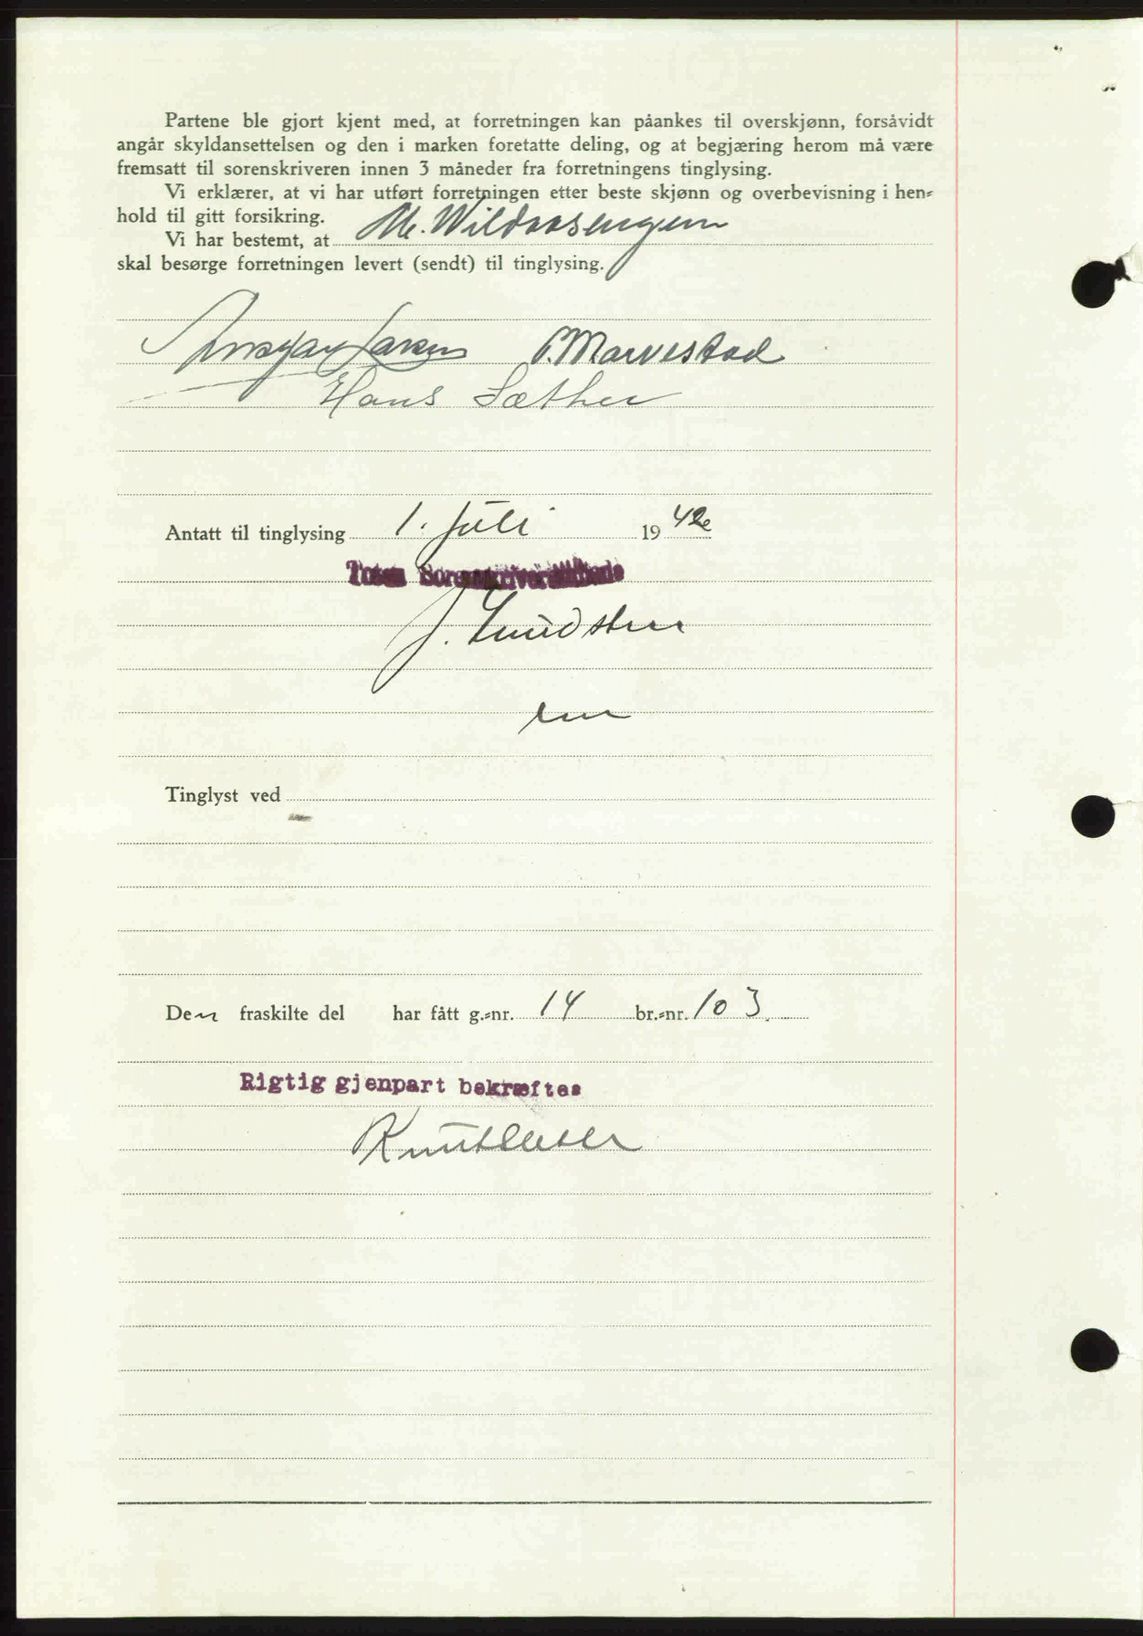 Partene ble gjort kjent med, at forretningen kan påankes til overskjønn, forsåvidt
angår skyldansettelsen og den i marken foretatte deling, og at begjæring herom må være
fremsatt til sorenskriveren innen 3 måneder fra forretningens tinglysing.
Vi erklærer, at vi har utført forretningen etter beste skjønn og overbevisning i hen-
hold til gitt forsikring.
Vi har bestemt, at M. Wildaasengen
skal besørge forretningen levert (sendt) til tinglysing.
Ansgar Larsen P. Marvestad
Hans Sæther
Antatt til tinglysing 1. juli 1942
Toten Sorenskriverembede
J. Knudsen
Tinglyst ved
Den fraskilte del har fått g.-nr. 14 br.-nr. 103.
Rigtig gjenpart bekræftes